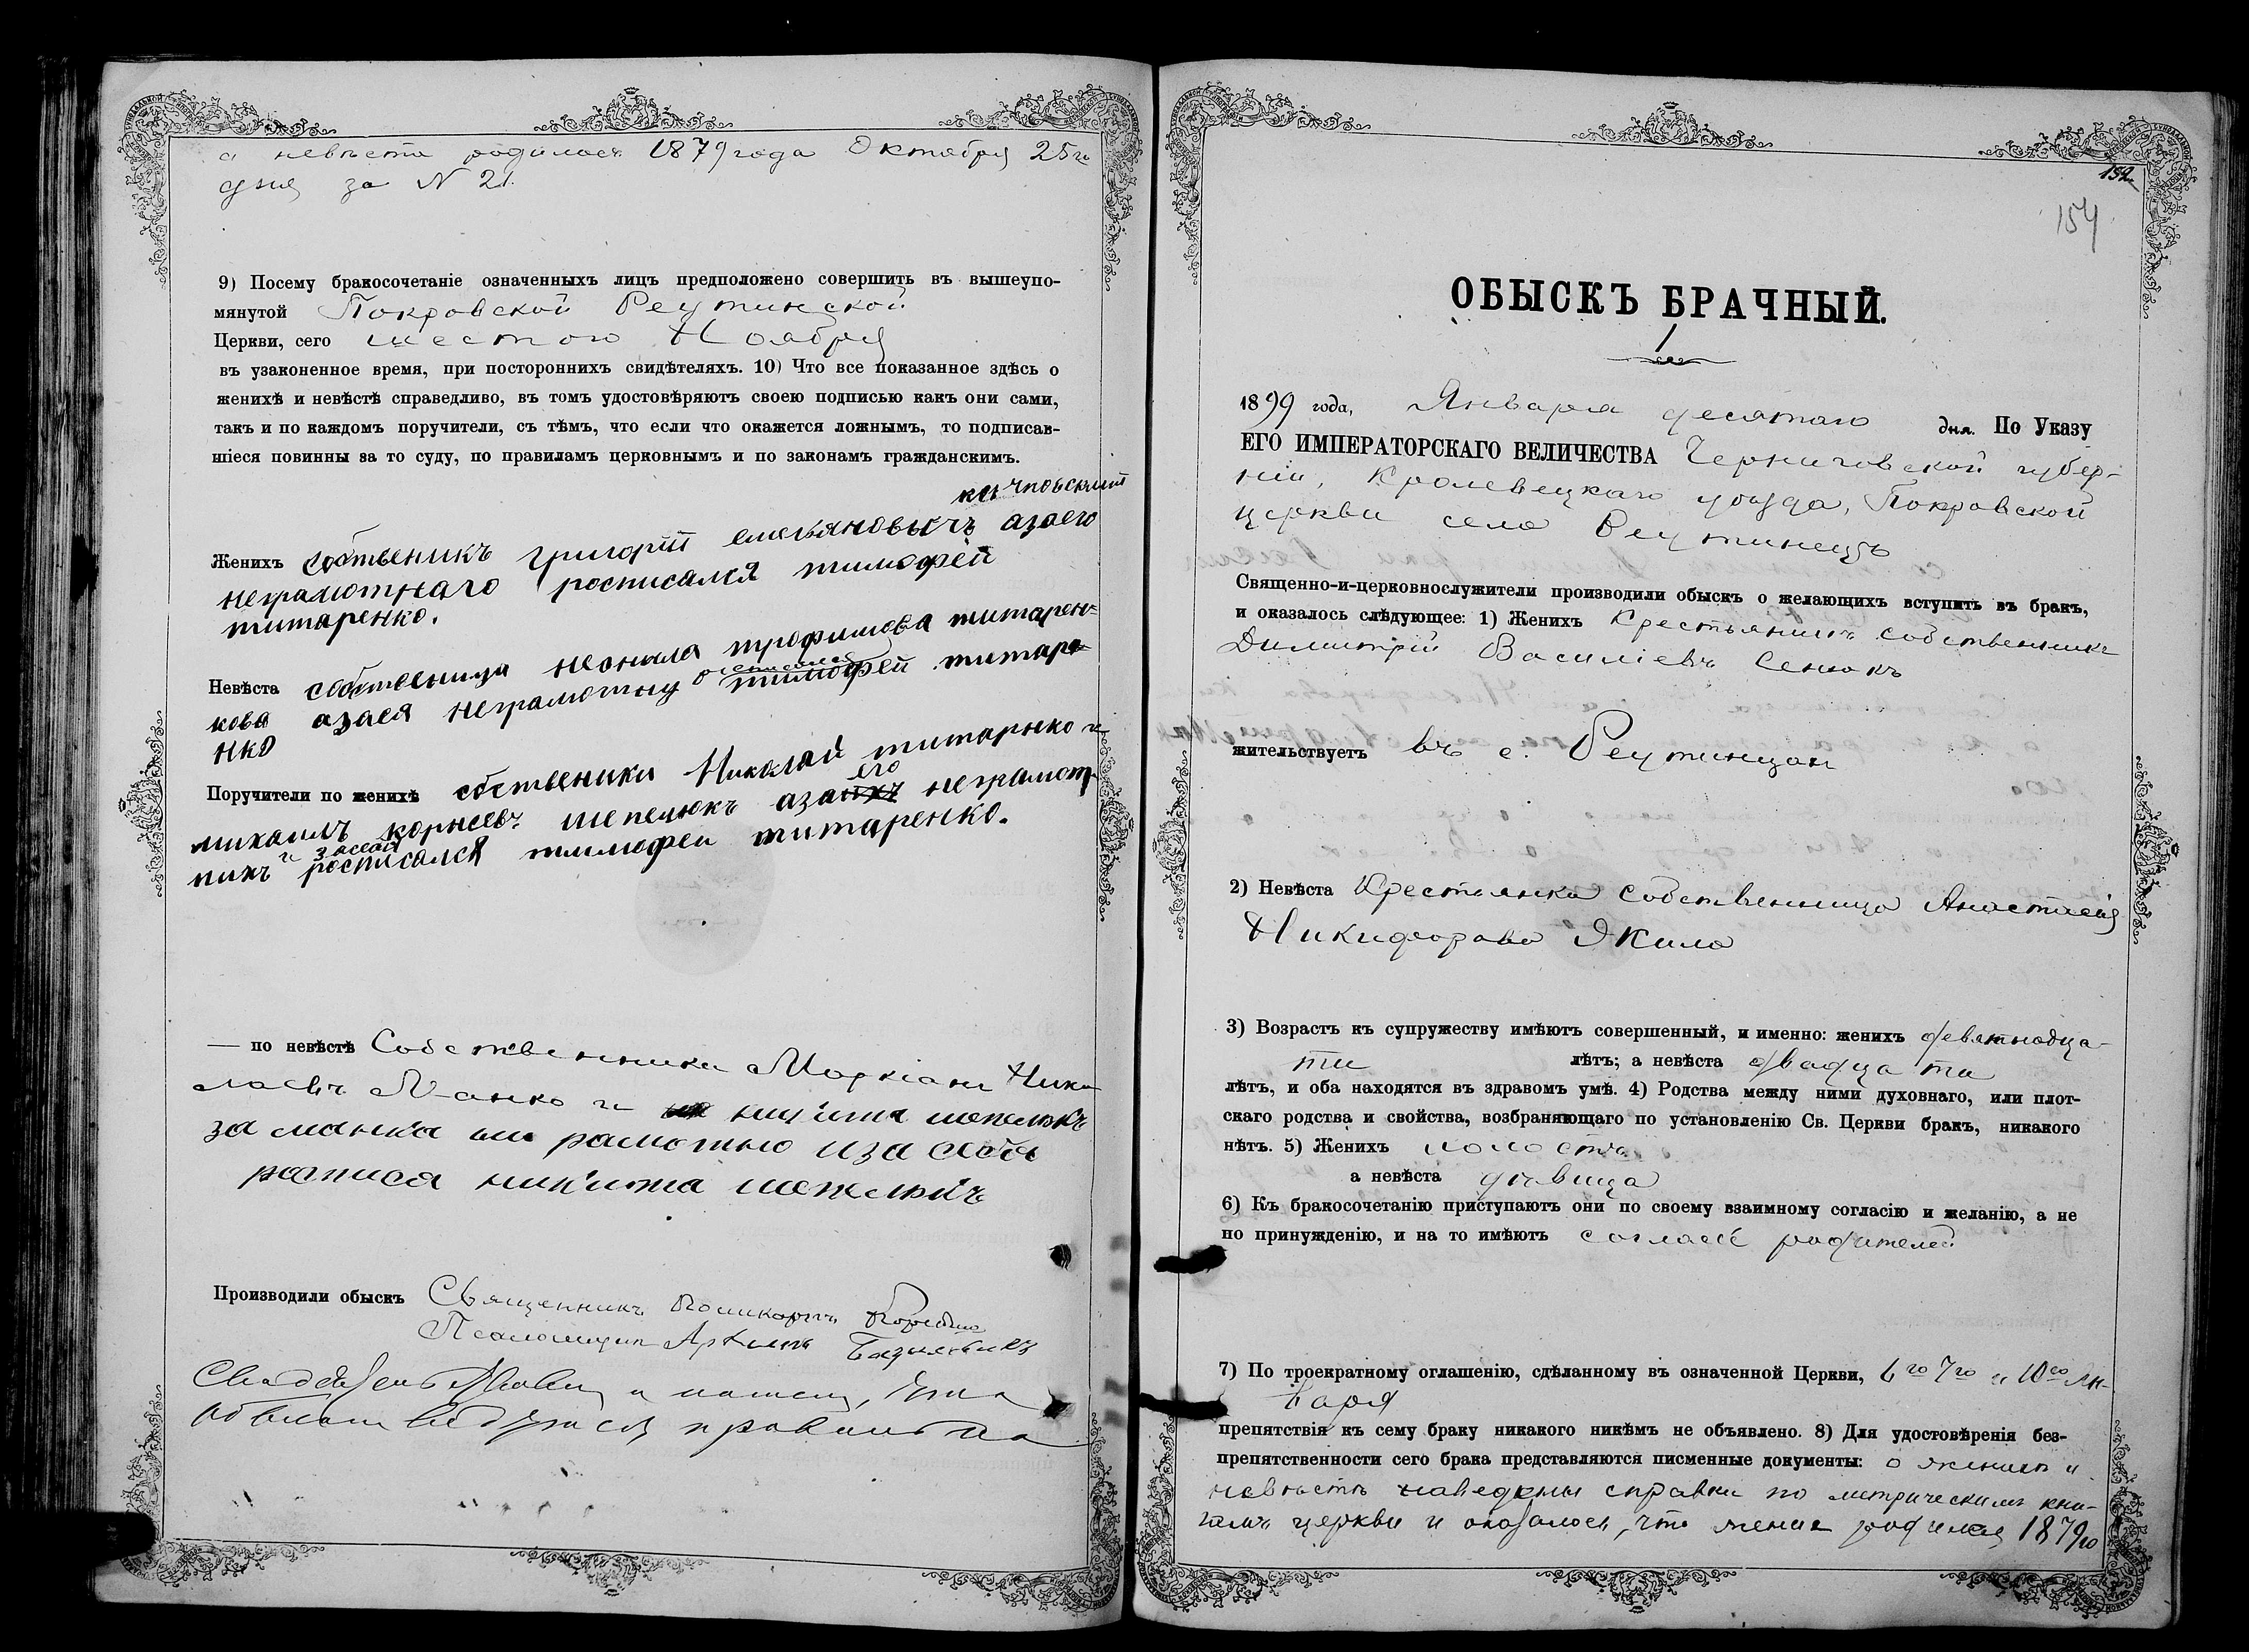 а невѣста родилась 1879 года Октября 25го
дня за N 21.
9) Посему бракосочетаніе означенныхъ лицъ предположено совершить въ вышеупо-
мянутой Покровской Реутинской
Церкви, сего шестого Ноября
въ узаконенное время, при постороннихъ свидѣтеляхъ. 10) Что все показанное здѣсь о
женихѣ и невѣстѣ справедливо, въ томъ удостовѣряютъ своею подписью какъ они сами,
такъ и по каждомъ поручители, съ тѣмъ, что если что окажется ложнымъ, то подписав-
шіеся повинны за то суду, по правиламъ церковнымъ и по законамъ гражданскимъ.
Женихъ собственикъ григорій емельяновычъ азаего
неграмотнаго росписался тимофей
титаренко.
Невѣста собственица неонила трофимова титарен-
кова азаея неграмотну тимофей титаре
нко
Поручители по женихѣ собственики Николай титарнко и
михаилъ корнѣевъ шепелюкъ аза его неграмот
нихъ и росписался тимофеи титаренко.
— по невѣстѣ Собственники Маркіанъ Нико
лаевъ Манко и никита шепелюкъ
за манка рамотно иза себя
росписа никита шепелюкъ
Производили обыскъ Священникъ Поликарпъ
Псаломщикъ
152
154
ОБЫСКЪ БРАЧНЫЙ.
1
1899 года, Января десятаго дня. По Указу
ЕГО ИМПЕРАТОРСКАГО ВЕЛИЧЕСТВА Черниговской губер-
ніи, Кролевецкаго уѣзда, Покровской
церкви села Реутинецъ
Священно-и-церковнослужители производили обыскъ о желающихъ вступить въ бракъ,
и оказалось слѣдующее: 1) Женихъ Крестьянинъ собственникъ
Димитрій Василіевъ Сенюкъ
жительствуетъ въ с. Реутинцахъ
2) Невѣста Крестьянка собственница Анастасія
Никифорова Якима
3) Возрастъ къ супружеству имѣютъ совершенный, и именно: женихъ девятнадца-
ти лѣтъ; а невѣста двадцати
лѣтъ, и оба находятся въ здравомъ умѣ. 4) Родства между ними духовнаго, или плот-
скаго родства и свойства, возбраняющаго по установленію Св. Церкви бракъ, никакого
нѣтъ. 5) Женихъ холостъ
а невѣста дѣвица
6) Къ бракосочетанію приступаютъ они по своему взаимному согласію и желанію, а не
по принужденію, и на то имѣютъ согласіе родителей
7) По троекратному оглашенію, сдѣланному въ означенной Церкви, 6го 7го и 10го Ян-
варя
препятствія къ сему браку никакого никѣмъ не объявлено. 8) Для удостовѣренія без-
препятственности сего брака представляются писменные документы: о женихѣ и
невѣстѣ наведены справки по метрическимъ кни-
гамъ церкви и оказалось, что женихъ родился 1879го